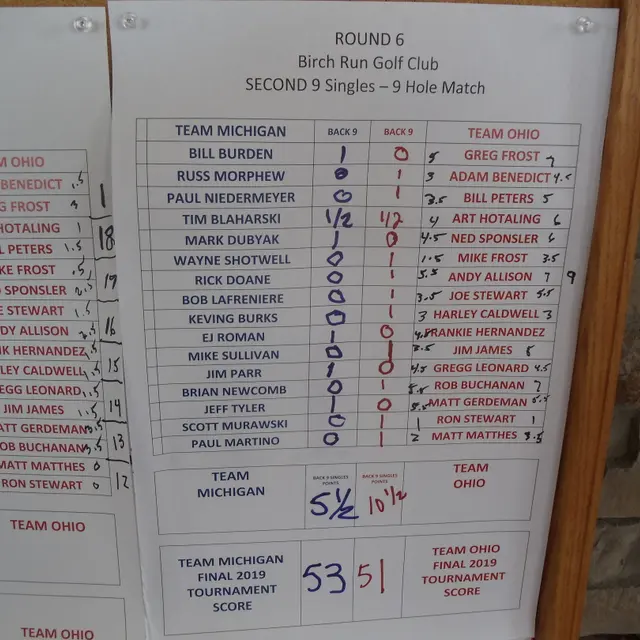 ROUND 6
Birch Run Golf Club
SECOND 9 Singles – 9 Hole Match
TEAM MICHIGAN BACK 9 BACK 9 TEAM OHIO
BILL BURDEN 1 0 5 GREG FROST 7
RUSS MORPHEW 0 1 3 ADAM BENEDICT 4.5
PAUL NIEDERMEYER 0 1 3.5 BILL PETERS 5
TIM BLAHARSKI 1/2 1/2 4 ART HOTALING 6
MARK DUBYAK 1 0 4.5 NED SPONSLER 6
WAYNE SHOTWELL 0 1 1.5 MIKE FROST 3.5
RICK DOANE 0 1 5.5 ANDY ALLISON 7 9
BOB LAFRENIERE 0 1 3.5 JOE STEWART 5.5
KEVING BURKS 0 1 3 HARLEY CALDWELL 3
EJ ROMAN 1 0 FRANKIE HERNANDEZ
MIKE SULLIVAN 0 1 3.5 JIM JAMES 5
JIM PARR 1 0 4.5 GREGG LEONARD 4.5
BRIAN NEWCOMB 0 1 5.5 ROB BUCHANAN 7
JEFF TYLER 1 0 5.5 MATT GERDEMAN 5.5
SCOTT MURAWSKI 0 1 1 RON STEWART 1
PAUL MARTINO 0 1 2 MATT MATTHES 3.5
TEAM MICHIGAN BACK 9 SINGLES POINTS 5 1/2 BACK 9 SINGLES POINTS 10 1/2 TEAM OHIO
TEAM MICHIGAN FINAL 2019 TOURNAMENT SCORE 53 51 TEAM OHIO FINAL 2019 TOURNAMENT SCORE
M OHIO
BENEDICT 1.5
G FROST
HOTALING 1
L PETERS 1.5
KE FROST .5
SPONSLER 2.5
E STEWART 1.5
DY ALLISON
IK HERNANDEZ
LEY CALDWELL
REGG LEONARD 1.5
JIM JAMES 1.5
ATT GERDEMAN
OB BUCHANAN
MATT MATTHES 0
RON STEWART 0
1
18
17
16
15
14
13
12
TEAM OHIO
TEAM OHIO